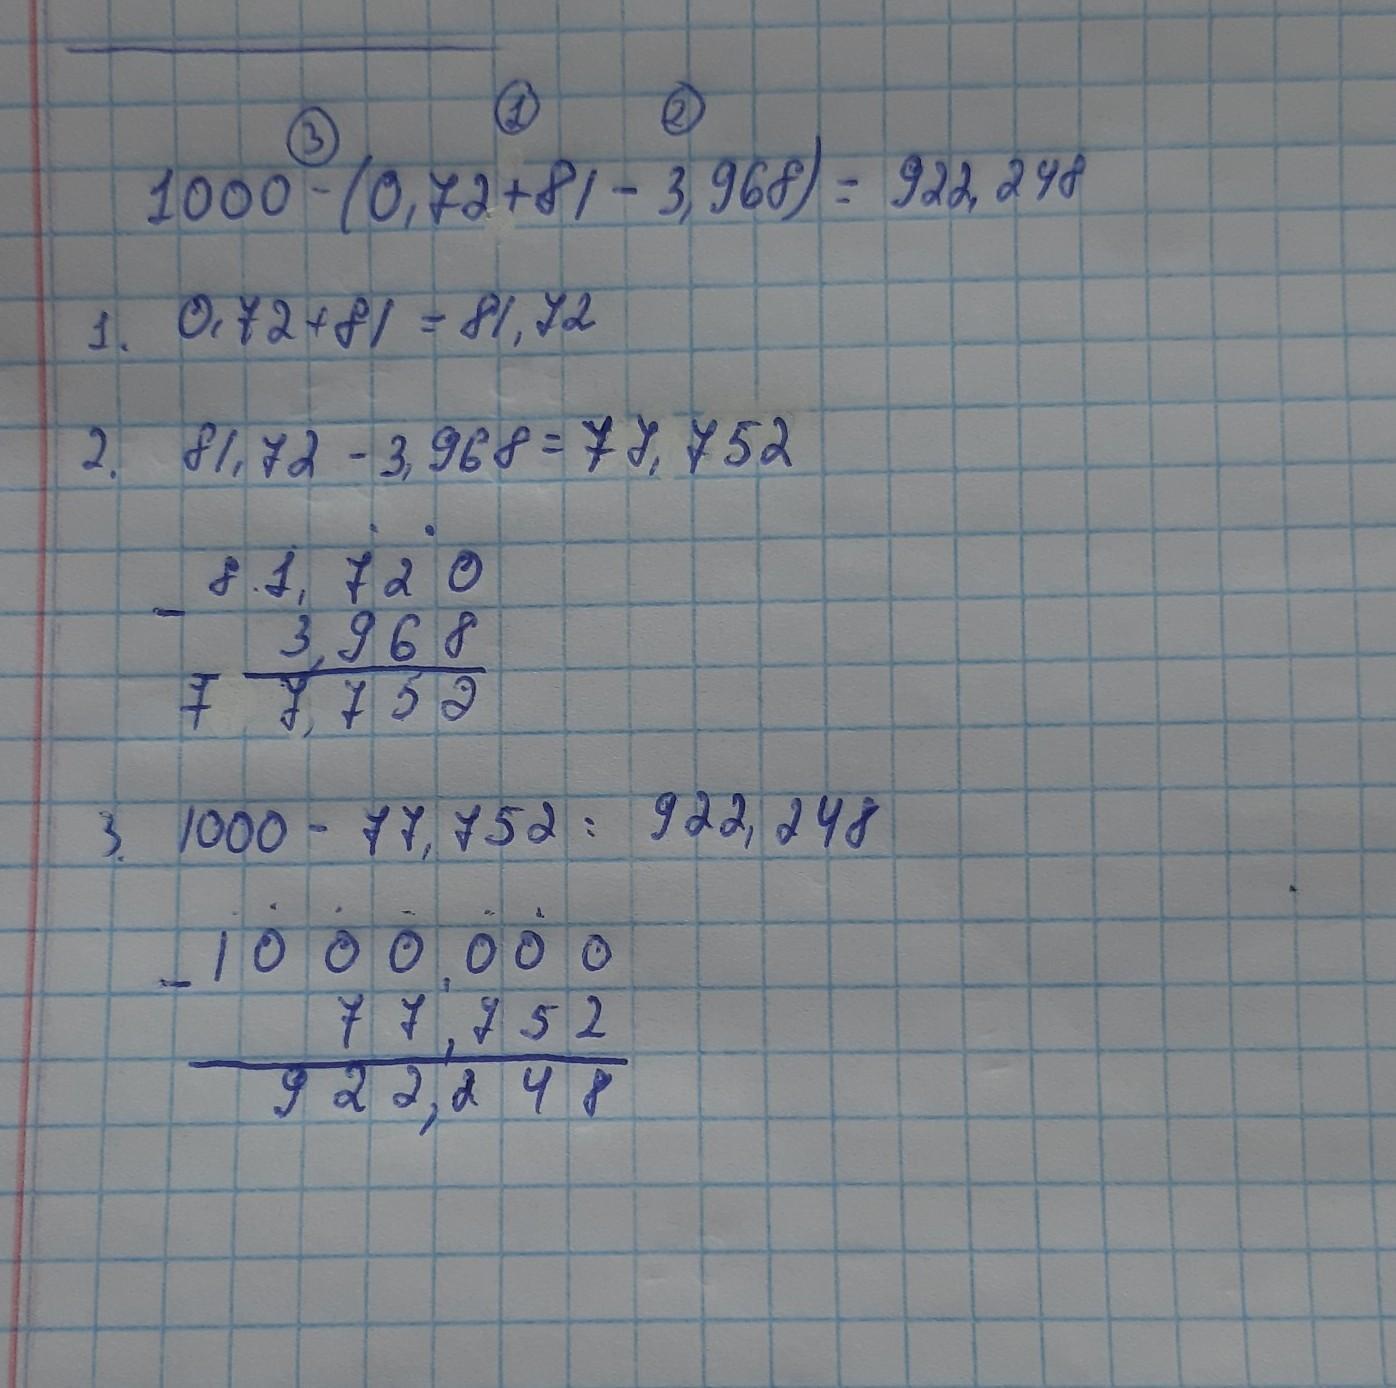 ③ ① ②
1000-(0,72+81-3,968)= 922,248
1. 0,72+81=81,72
2. 81,72-3,968=77,752
81,720
-
3,968
77,752
3. 1000-77,752= 922,248
1000,000
-
77,752
922,248